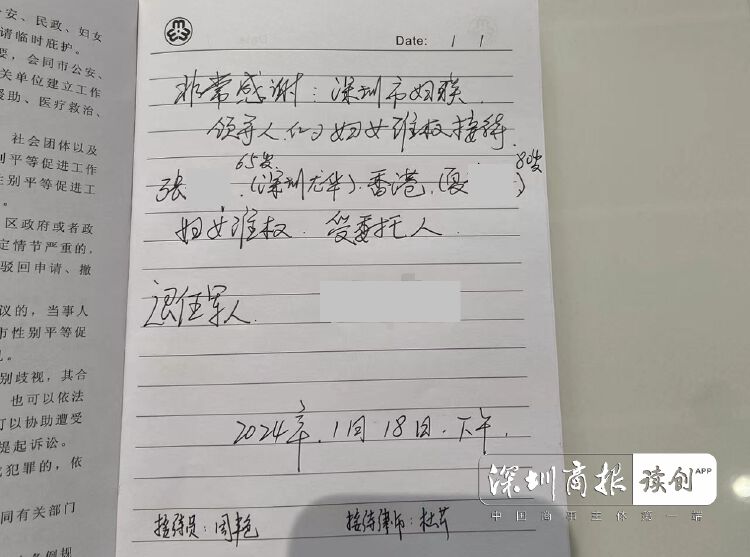 安、民政、妇女
请临时庇护。
要，会同市公安、
关单位建立工作
援助、医疗救治、
社会团体以及
别平等促进工作
性别平等促进工
。
区政府或者政
定情节严重的，
驳回申请、撤
议的，当事人
市性别平等促
别歧视，其合
也可以依法
可以协助遭受
提起诉讼。
犯罪的，依
同有关部门
Date: / /
非常感谢：深圳市妇联
领导人们的妇女维权接待
65岁 80岁
张 （深圳 ）香港（ ）
妇女维权 受委托人
退伍军人
2024年 1月 18日 下午
接待员：周 
接待律师：杜
深圳商报 读创APP
中国商事主体第一端